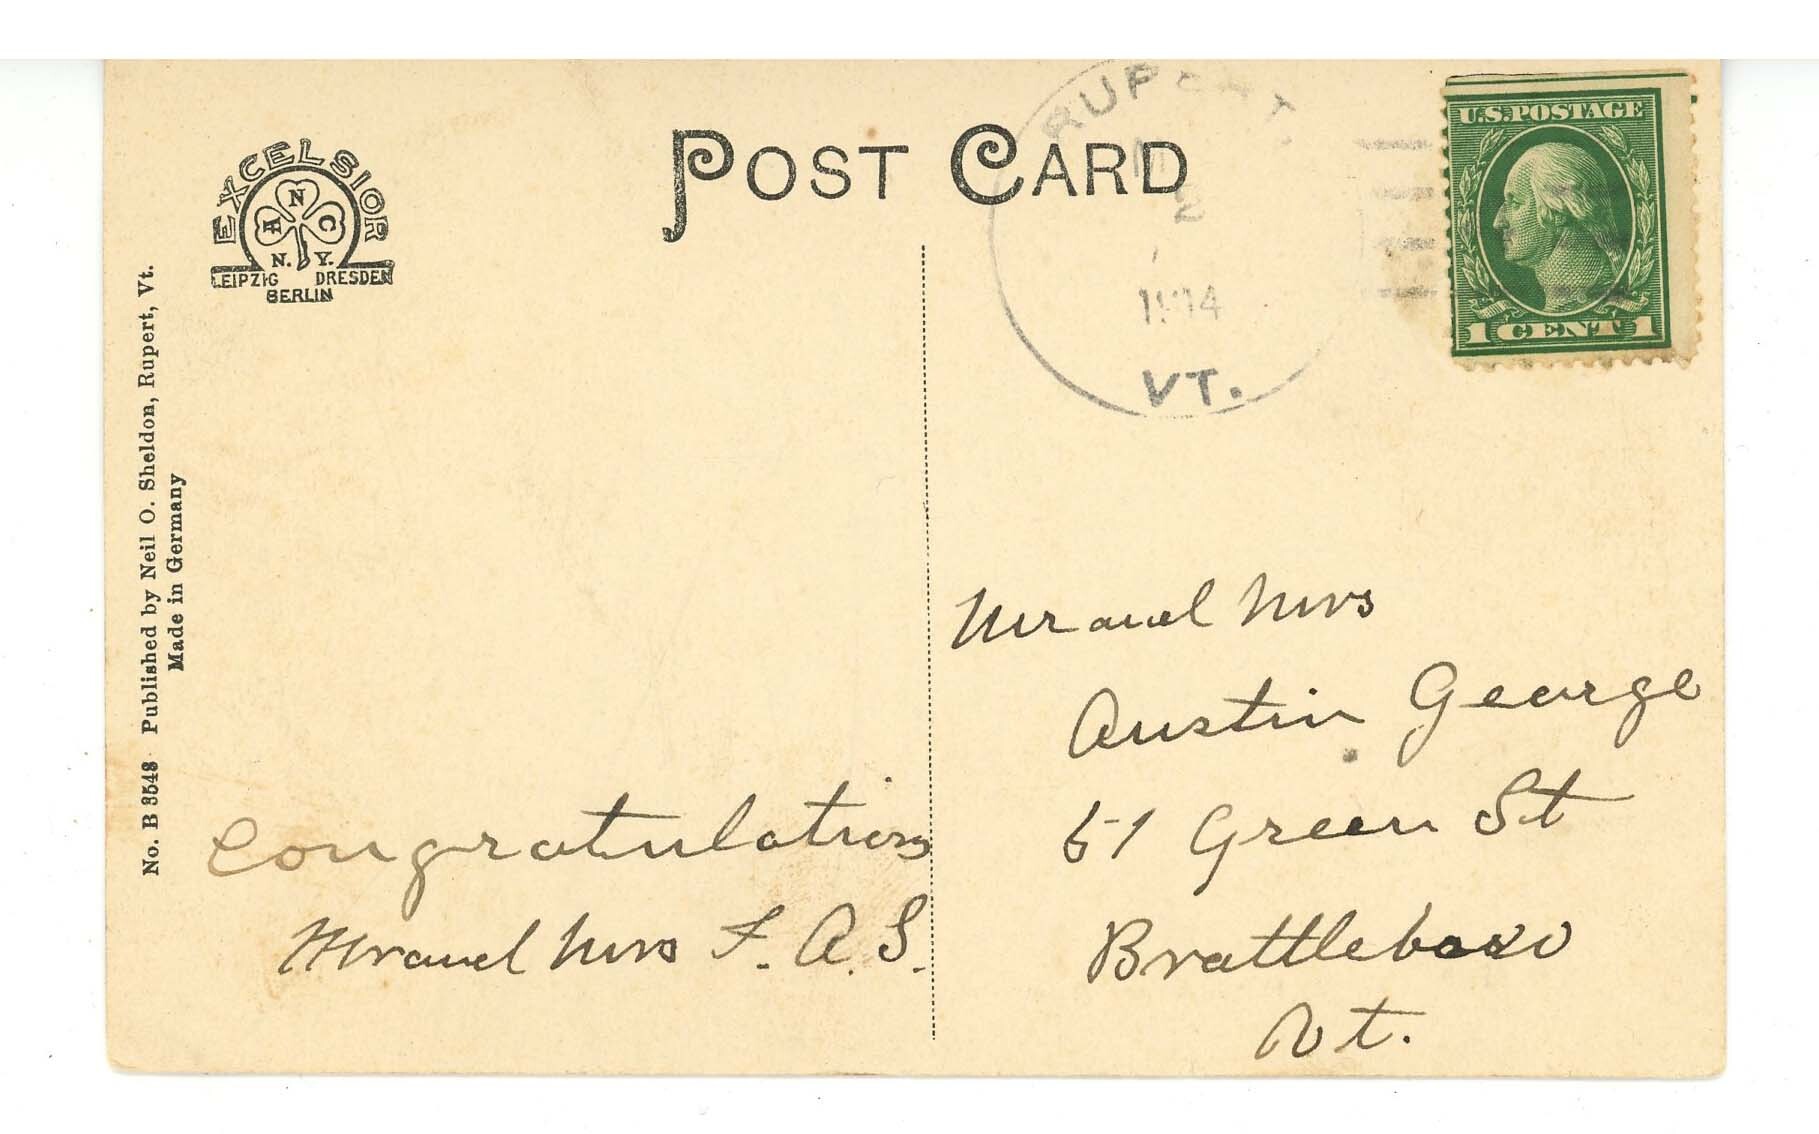 EXCELSIOR
A N C
N. Y.
LEIPZIG DRESDEN
BERLIN
POST CARD
RUPERT,
2
1914
VT.
U.S. POSTAGE
1 CENT 1
No. B 8548 Published by Neil O. Sheldon, Rupert, Vt.
Made in Germany
Congratulations
Mr and Mrs F. A. S.
Mr and Mrs
Austin George
51 Green St
Brattleboro
Vt.